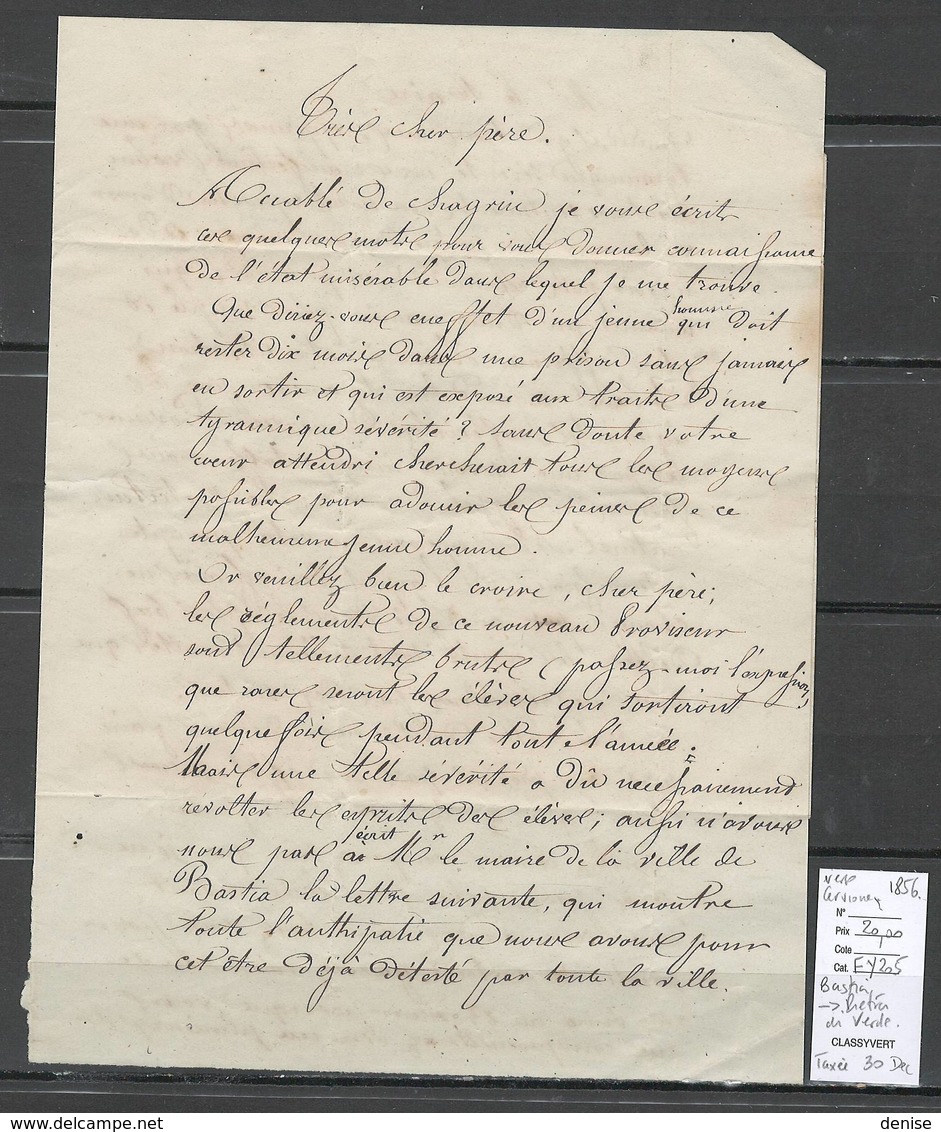 Très cher père.
Accablé de chagrin je vous écrits
ces quelques mots pour vous donner connaissance
de l'état misérable dans lequel je me trouve.
Que diriez-vous en effet d'un jeune homme qui doit
rester dix mois dans une prison sans jamais
en sortir et qui est exposé aux traits d'une
tyrannique sévérité ? Sans doute votre
coeur attendri chercherait tous les moyens
possibles pour adoucir les peines de ce
malheureux jeune homme.
Or veuillez bien le croire, cher père ;
les réglements de ce nouveau Proviseur
sont tellements bruts (passez-moi l'expression)
que rares seront les élèves qui sortiront
quelque fois pendant tout l'année.
Mais une telle sévérité a dû necessairement
révolter les esprits des élèves ; aussi n'avons
nous pas écrit à Mr le maire de la ville de
Bastia la lettre suivante, qui montre
toute l'anthipatie que nous avons pour
cet être déjà détesté par toute la ville.
1856.
Cervione
N°
Prix 20,00
Cote
Cat. EY205
Bastia
-> Pietra
di Verde.
CLASSYVERT
Taxée 30 Dec
denise